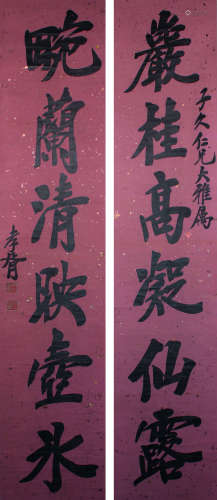 巖桂高凝仙露
子久仁兄大雅属
畹蘭清映壺氷
孝胥